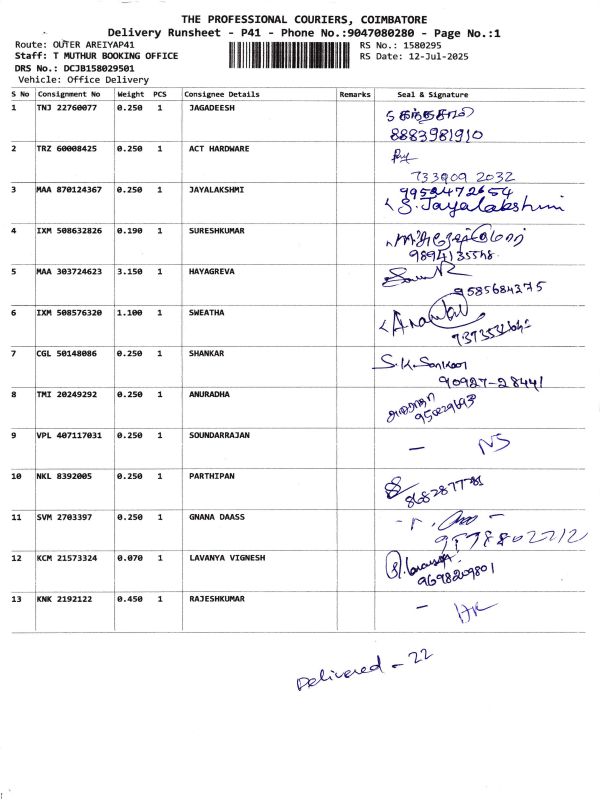 THE PROFESSIONAL COURIERS, COIMBATORE
Delivery Runsheet - P41 - Phone No.:9047080280 - Page No.:1
Route: OUTER AREIYAP41 RS No.: 1580295
Staff: T MUTHUR BOOKING OFFICE RS Date: 12-Jul-2025
DRS No.: DCJB158029501
Vehicle: Office Delivery
S No Consignment No Weight PCS Consignee Details Remarks Seal & Signature
1 TNJ 22760077 0.250 1 JAGADEESH
8883981910
2 TRZ 60008425 0.250 1 ACT HARDWARE
733909 2032
3 MAA 870124367 0.250 1 JAYALAKSHMI 9952472654
S. Jayalakshmi
4 IXM 508632826 0.190 1 SURESHKUMAR
5 MAA 303724623 3.150 1 HAYAGREVA
9585684375
6 IXM 508576320 1.100 1 SWEATHA
7 CGL 50148086 0.250 1 SHANKAR S.K. Sankar
90927-28441
8 TMI 20249292 0.250 1 ANURADHA
9 VPL 407117031 0.250 1 SOUNDARRAJAN - NS
10 NKL 8392005 0.250 1 PARTHIPAN
11 SVM 2703397 0.250 1 GNANA DAASS
12 KCM 21573324 0.070 1 LAVANYA VIGNESH
9698209801
13 KNK 2192122 0.450 1 RAJESHKUMAR -
Delivered - 22